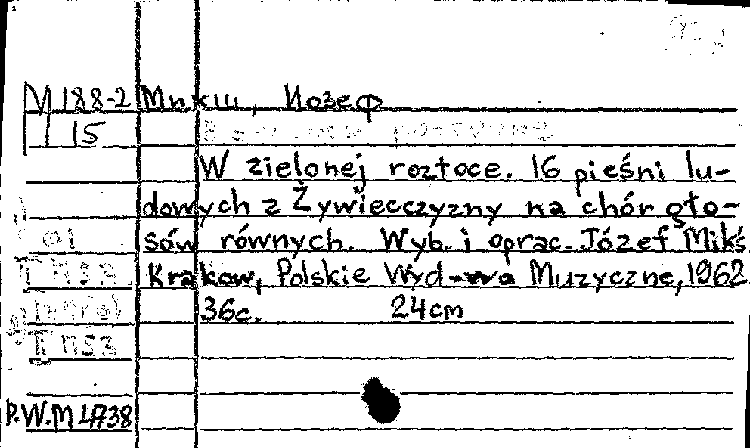 М188-2 Микш, Йозеф
15
W zielonej roztoce. 16 pieśni lu-
dowych z Żywiecczyzny na chór gło-
sów równych. Wyb. i oprac. Józef Mikś
Krakow, Polskie Wyd-wa Muzyczne, 1962
36с. 24cm
P.W.M